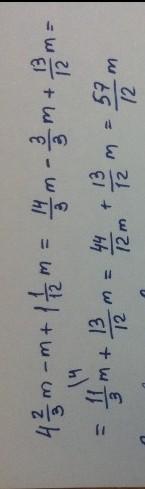 4 2/3 m - m + 1 1/12 m = 14/3 m - 3/3 m + 13/12 m =
= 11/3 m + 13/12 m = 44/12 m + 13/12 m = 57/12 m